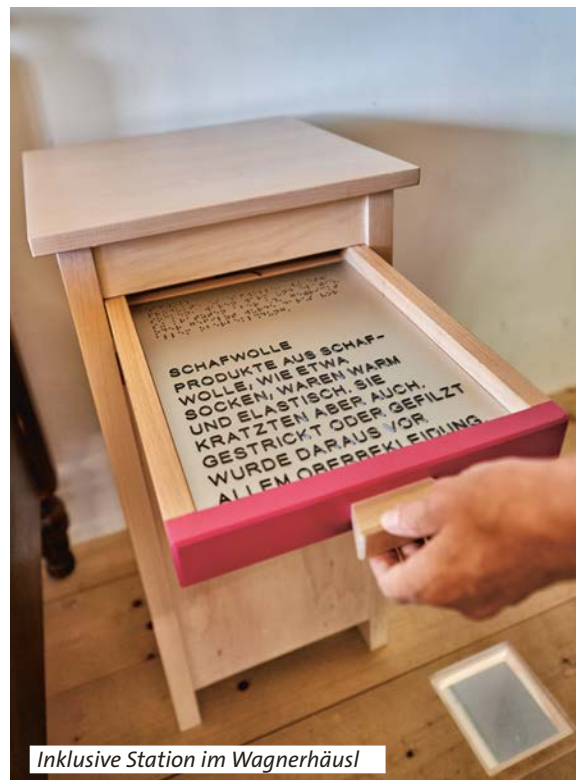 SCHAFWOLLE
PRODUKTE AUS SCHAF-
WOLLE, WIE ETWA
SOCKEN, WAREN WARM
UND ELASTISCH. SIE
KRATZTEN ABER AUCH.
GESTRICKT ODER GEFILZT
WURDE DARAUS VOR
ALLEM OBERBEKLEIDUNG
Inklusive Station im Wagnerhäusl